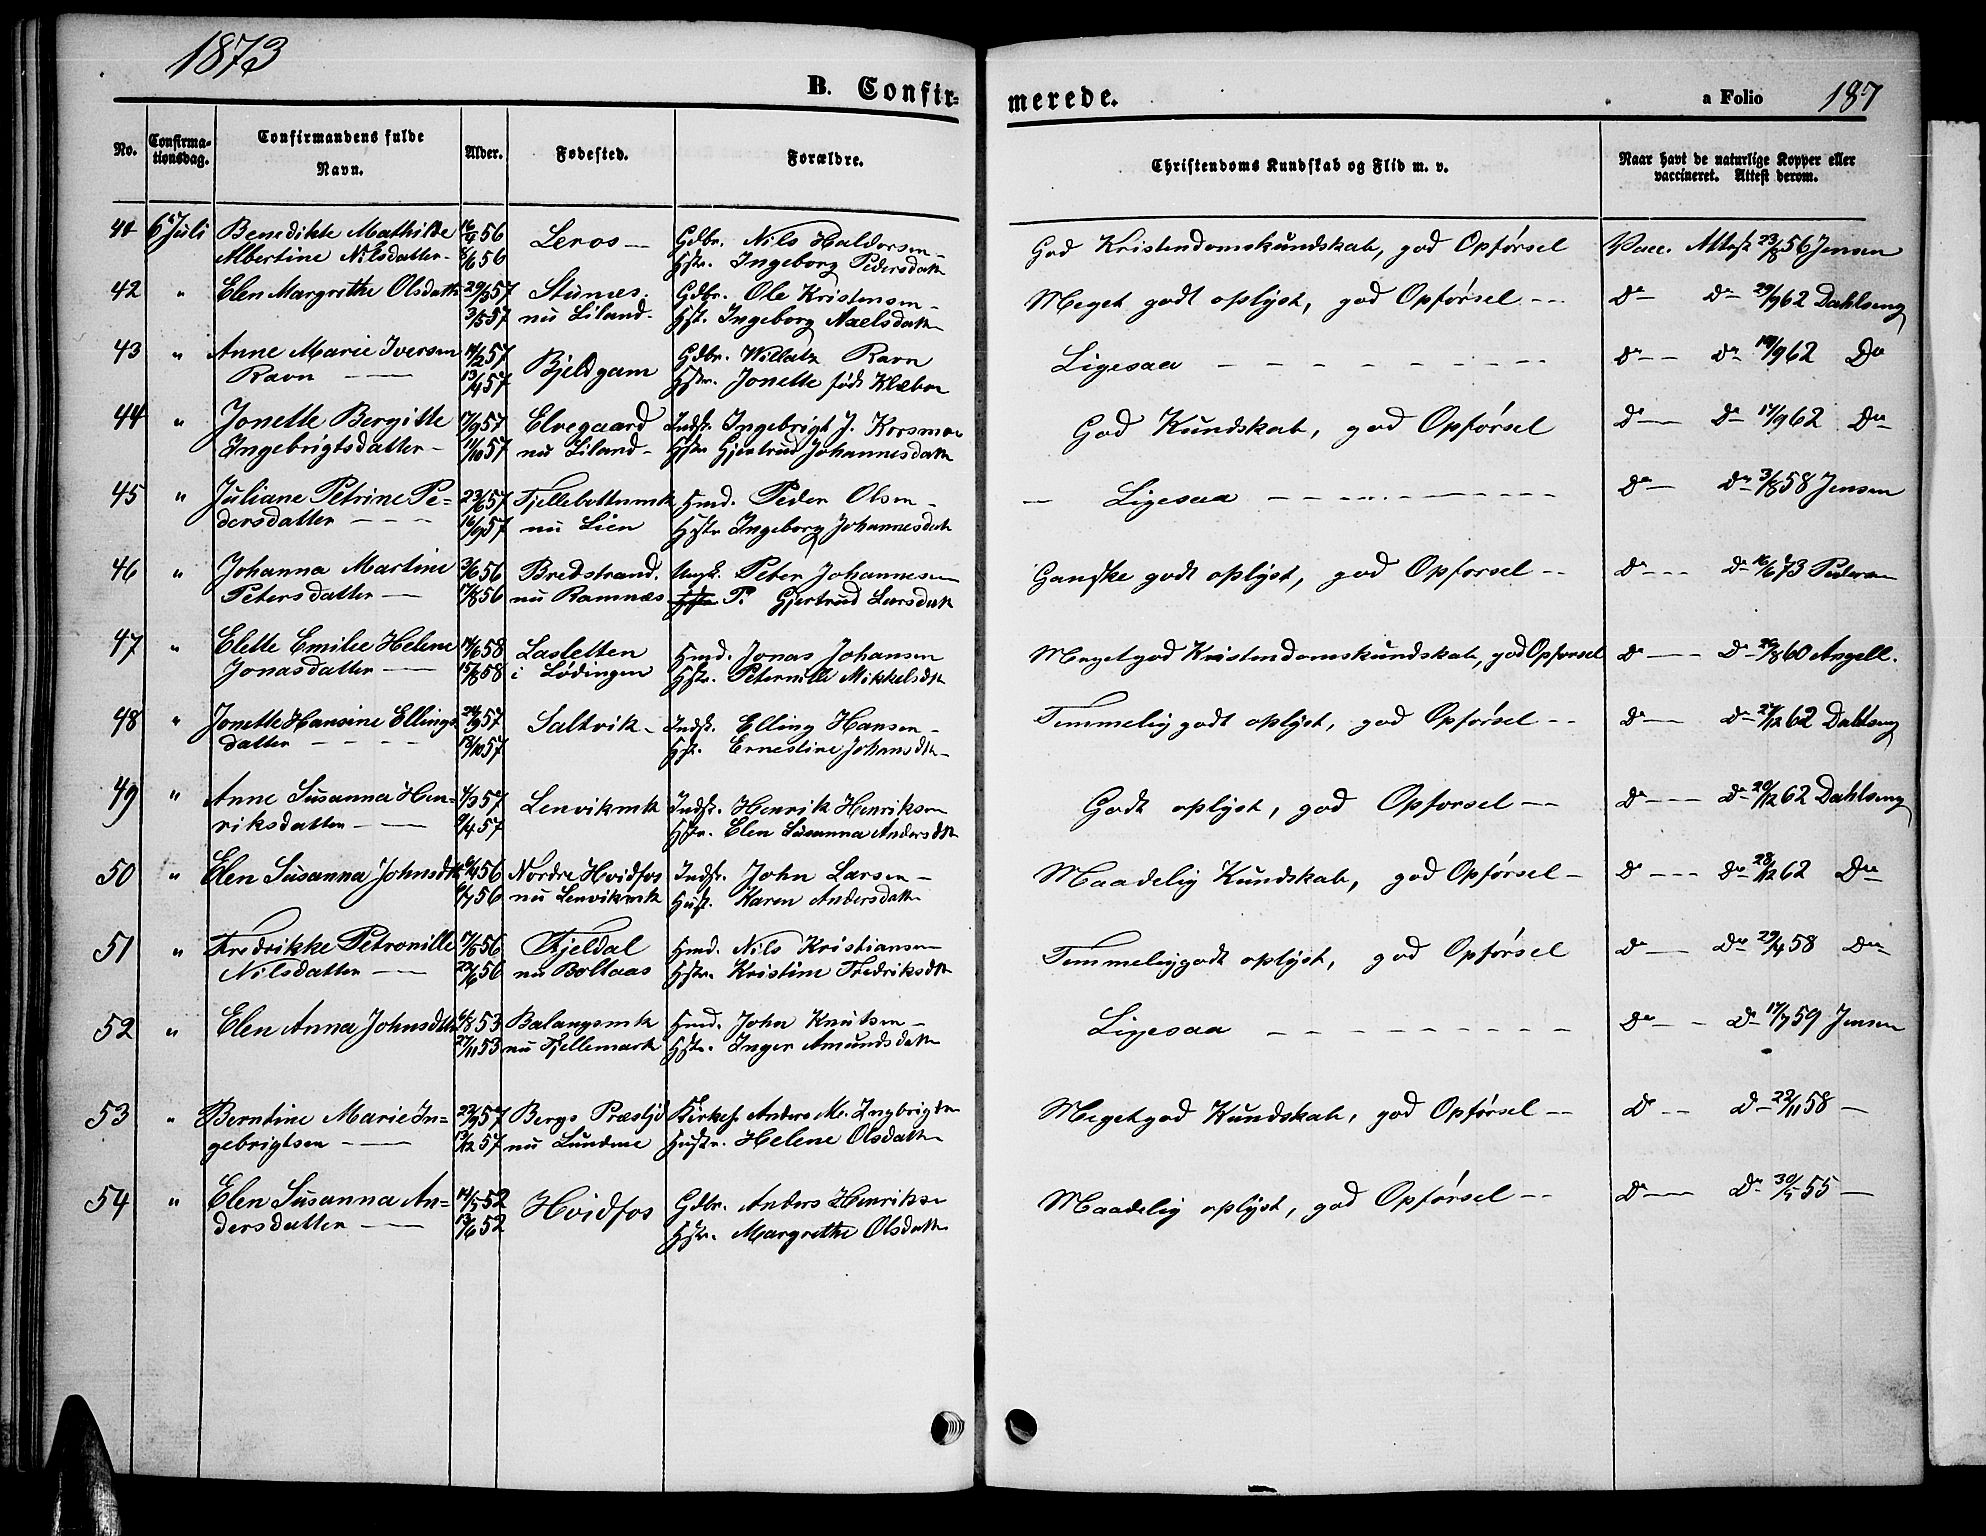 1873
B. Confir-
merede.
a Folio 187
No.
Confirma-
tionsdag.
Confirmandens fulde
Navn.
Alder.
Fødested.
Forældre.
Christendoms Kundskab og Flid m. v.
Naar havt de naturlige Kopper eller
vaccineret. Attest derom.
41 6 Juli Benedikte Mathilde 56 Leros — Gdbr. Nils Haldorsen — God Kristendomskundskab, god Opførsel Vacc. Attest 23/8 56 Jensen
Albertine Nilsdatter - 56 Hstr. Ingeborg Pedersdatt
42 " Elen Margrethe Olsdatt 29/3 57 Stunes. Gdbr. Ole Kristensen — Meget godt oplyst, god Opførsel — Do — Do 29/9 62 Dahlseng
3/5 57 nu Liland. Hst. Ingeborg Naelsdatt
43 " Anne Marie Iversen 14/2 57 Bjeldgam Gdbr. Willatz Ravn Ligesaa — Do — Do 19/9 62 Do
Ravn — 13/4 57 Hstr. Jonette født Klæboe
44 " Jonette Bergitte 17/9 57 Elvegaard Indst. Ingebrigt J. Korsmoe God Kundskab, god Opførsel Do — Do 17/9 62 Do
Ingebrigtsdatter — 11/10 57 nu Liland — Hstr Gjertrud Johannesdatt
45 " Juliane Petrine Pe- 23/6 57 Fjellebotnmk Hmd. Peder Olsen — Ligesaa — Do — Do 3/8 58 Jensen
dersdatter — 16/9 57 nu Lien Hstr Ingeborg Johannesdatt
46 " Johanna Martine 3/6 56 Bredstrand. Ungk. Peter Johannesen Ganske godt oplyst, god Opførsel — Do — Do 16/6 73 Pedersen
Petersdatter — 17/8 56 nu Ramnæs. P. Gjertrud Larsdatt
47 " Elette Emilie Helene 14/6 58 Lasletten Hmd. Jonas Johansen Meget god Kristendomskundskab, god Opførsel Do — Do 26/8 60 Angell.
Jonasdatter — 15/8 58 i Lødingen Hstr. Peternille Mikkelsdtr
48 " Jonette Hansine Ellings- 24/9 57 Saltvik — Indst. Elling Hansen — Temmelig godt oplyst, god Opførsel — Do — Do 27/12 62 Dahlseng
datter — 13/12 57 Hstr. Ernestine Johansdtr —
49 " Anne Susanna Hen- 4/3 57 Lenvikmk Indst. Henrik Henriksen Godt oplyst, god Opførsel — Do — Do 20/12 62 Dahlseng
riksdatter — 9/4 57 Hstr. Elen Susanna Andersdtr
50 " Elen Susanna Johnsdtr 6/4 56 Nordre Hvidfos Indst. John Larsen — Maadelig Kundskab, god Opførsel — Do — Do 28/12 62 Do
9/7 56 nu Lenvikmk Hust. Karen Andersdatt
51 " Fredrikke Petronille 17/5 56 Fjeldal Hmd. Nils Kristiansen Temmelig godt oplyst, god Opførsel Do — Do 29/4 58 Do
Nilsdatter — 22/6 56 nu Boltaas Hstr. Kristine Fredriksdtr
52 " Elen Anna Johnsdtr 6/8 53 Balangsmk Hmd. John Knutsen — Ligesaa — Do — Do 17/7 59 Jensen
27/11 53 nu Fjellemark Hstr. Inger Amundsdatt
53 " Berntine Marie In- 22/9 57 Bergs Præstgj Kirkes. Anders M. Ingbrigtsen Meget god Kundskab, god Opførsel — Do — Do 22/11 58 —
gebrigtsen — 13/12 57 nu Lundene Hustr. Helene Olsdatt
54 " Elen Susanna An- 14/5 52 Hvidfos Gdbr. Anders Henriksen Maadelig oplyst, god Opførsel — Do — Do 30/5 55 —
dersdatter — 13/6 52 Hstr. Margrethe Olsdatt